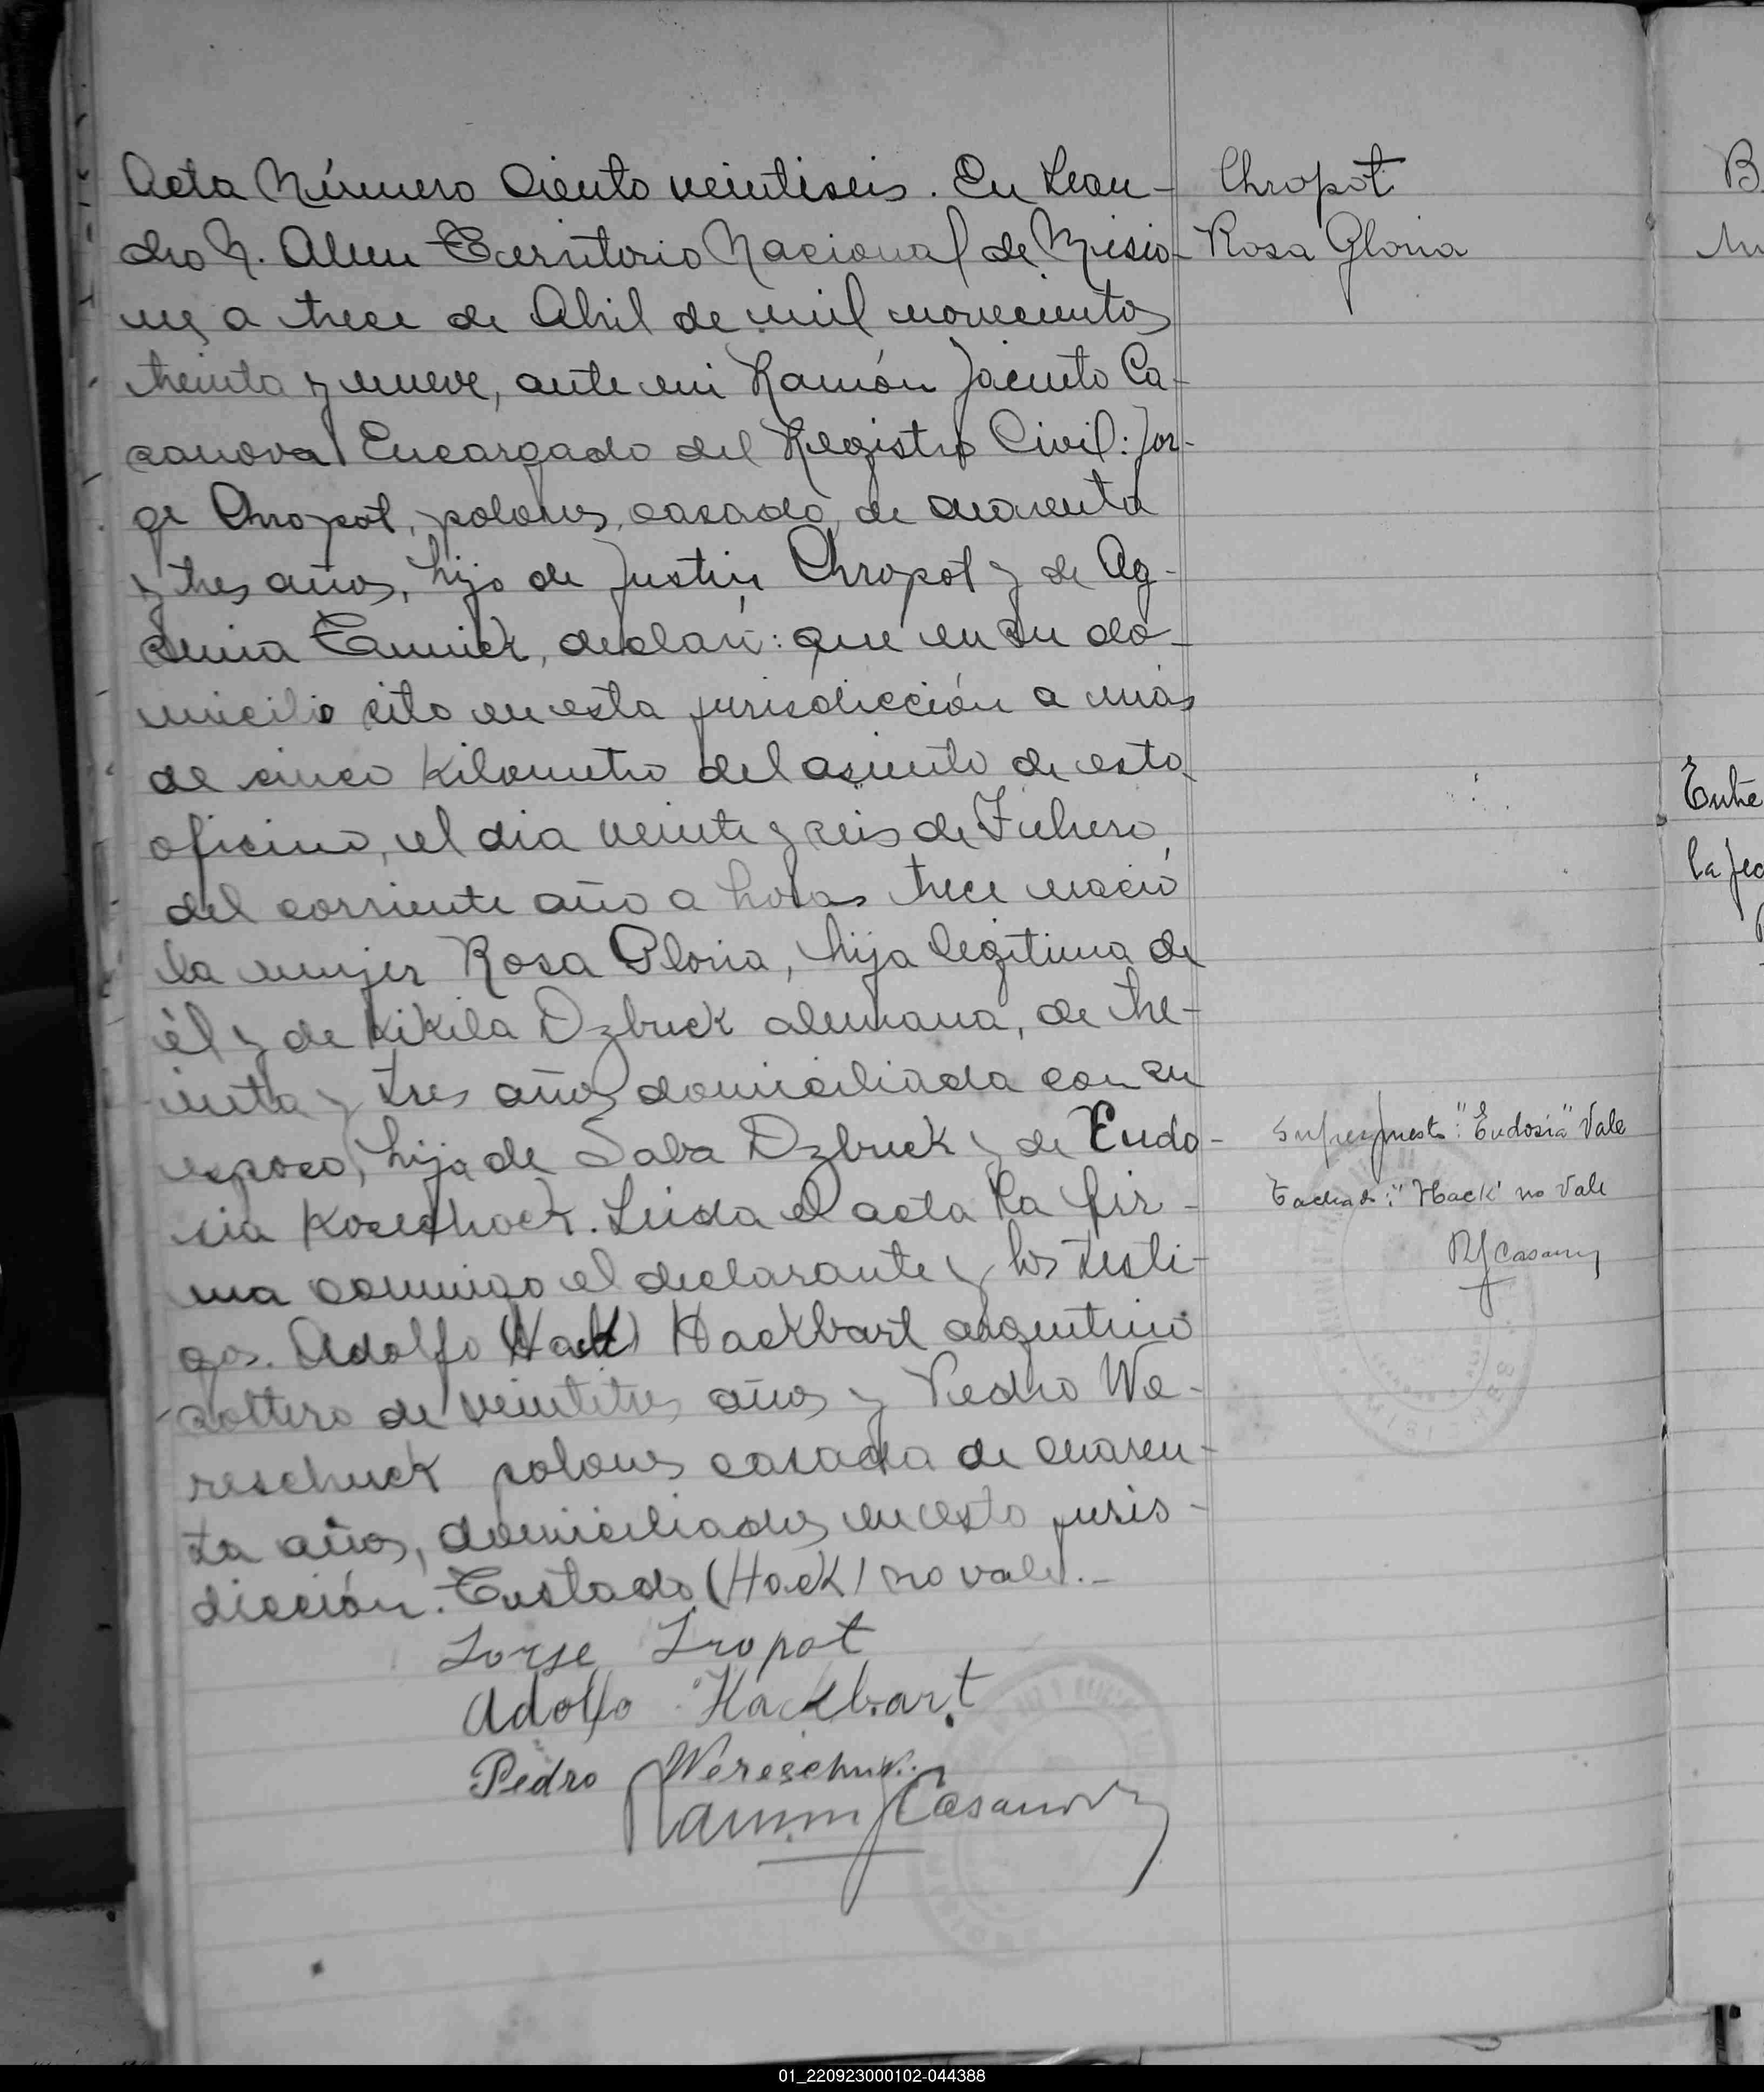 Acta Número Ciento veintiseis. En Lean-
dro N. Alem Territorio Nacional de Misio-
nes a trece de Abril de mil novecientos
treinta y nueve, ante mi Ramón Jacinto Ca-
sanova Encargado del Registro Civil: Jor-
ge Chropot, polones, casado, de cuarenta
y tres años, hijo de Justin Chropot y de Ag-
senia declaró: que en su do-
micilio sito en esta jurisdicción a más
de cinco Kilometro del asiento de esta
oficina, el dia veinte y seis de Febrero,
del corriente año a horas trece nació
la mujer Rosa Gloria, hija legitima de
él y de Kikila Dzbuck alemana, de tre-
inta y tres años domiciliada con su
esposo, hija de Saba Dzbuck y de Eudo-
sia Leida el acta la fir-
ma conmigo el declarante y los testi-
gos. Adolfo (Hack) Hackbart argentino
soltero de veintitres años y Pedro We-
reschuck polones casado de cuaren-
ta años, domiciliados en esta juris-
dicción. Testado (Hack) no vale.-
Jorse Lropot
Adolfo Hackbart
Pedro Wereschuk
Ramón J Casanova
Chropot
Rosa Gloria
Sobrepuesto: "Eudosia" Vale
Tachado: "Hack" no Vale
RJCasanova
B
Entre
la fec
01_220923000102-044388